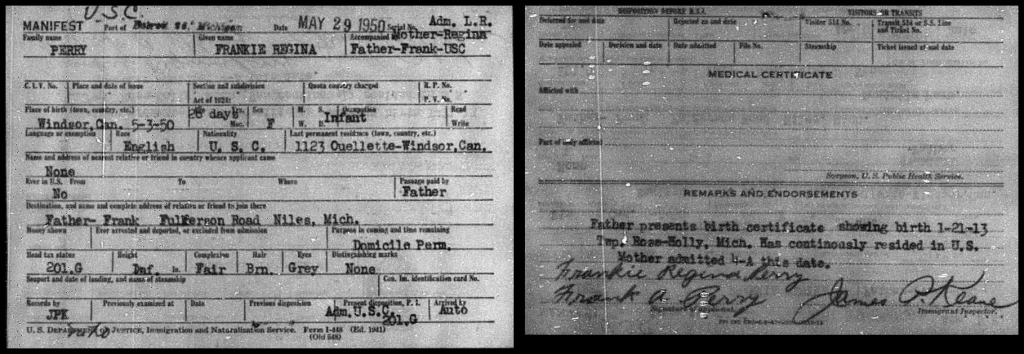 U.S.C.
MANIFEST Port of Detroit 26, Michigan Date MAY 29 1950 Serial No. Adm. L.R.
Family name Given name Accompanied Mother-Regina
PERRY FRANKIE REGINA Father-Frank-USC
C.I.V. No. Place and date of issue Section and subdivision Quota country charged R.P. No.
Act of 1924: P.V. No.
Place of birth (town, country, etc.) Age Yrs. Sex M. S. Occupation Read
26 days Mos. W. D. Infant Write
Windsor, Can. 5-3-50 F
Language or exemption Race Nationality Last permanent residence (town, country, etc.)
English U. S. C. 1123 Ouellette-Windsor, Can.
Name and address of nearest relative or friend in country whence applicant came
None
Ever in U.S. From To Where Passage paid by
No Father
Destination, and name and complete address of relative or friend to join there
Father- Frank Fulkerson Road Niles, Mich.
Money shown Ever arrested and deported, or excluded from admission Purpose in coming and time remaining
Domicile Perm.
Head tax status Height Complexion Hair Eyes Distinguishing marks
201.G Inf. In. Fair Brn. Grey None
Seaport and date of landing, and name of steamship Can. Im. identification card No.
Records by Previously examined at Date Previous disposition Present disposition, P. I. Arrived by
JPK Adm. U.S.C. Auto
201.G
U. S. DEPARTMENT OF JUSTICE, Immigration and Naturalization Service. Form I-448 (Ed. 1941)
(Old 548)
DISPOSITION BEFORE B.S.I. VISITORS OR TRANSITS
Deferred for and date Rejected and date Visitor 514 No. Transit 514 or S.S. Line
and Ticket No.
Date appealed Decision and date Date admitted File No. Steamship Ticket issued at and date
MEDICAL CERTIFICATE
Afflicted with
Part of body afflicted
Surgeon, U. S. Public Health Service.
REMARKS AND ENDORSEMENTS
Father presents birth certificate showing birth 1-21-13
Twp. Rose-Holly, Mich. Has continously resided in U.S.
Mother admitted 4-A this date.
Frankie Regina Perry
Frank A. Perry James P. Keane
Immigrant Inspector.